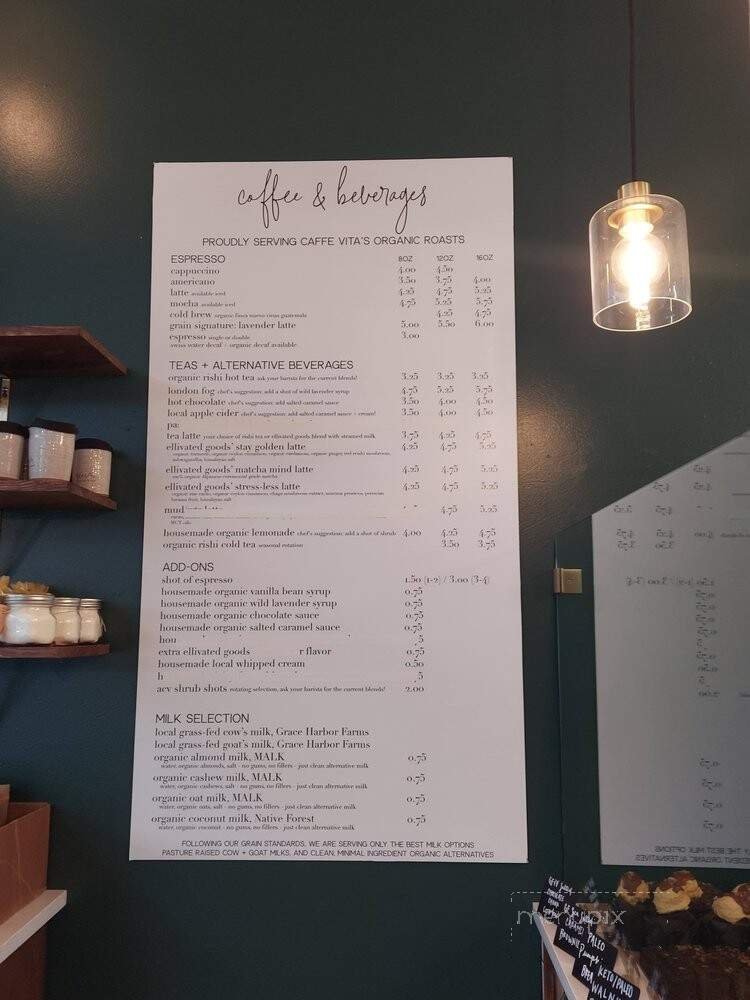 coffee & beverages
PROUDLY SERVING CAFFE VITA'S ORGANIC ROASTS
ESPRESSO 8OZ 12OZ 16OZ
cappuccino 4.00 4.50
americano 3.50 3.75 4.00
latte available iced 4.25 4.75 5.25
mocha available iced 4.75 5.25 5.75
cold brew organic finca nuevo vinas guatemala 4.25 4.75
grain signature: lavender latte 5.00 5.50 6.00
espresso single or double 3.00
swiss water decaf + organic decaf available
TEAS + ALTERNATIVE BEVERAGES
organic rishi hot tea ask your barista for the current blends! 3.25 3.25 3.25
london fog chef's suggestion: add a shot of wild lavender syrup 4.75 5.25 5.75
hot chocolate chef's suggestion: add salted caramel sauce 3.50 4.00 4.50
local apple cider chef's suggestion: add salted caramel sauce + cream! 3.50 4.00 4.50
pa:
tea latte your choice of rishi tea or ellivated goods blend with steamed milk 3.75 4.25 4.75
ellivated goods' stay golden latte 4.25 4.75 5.25
organic turmeric, organic ceylon cinnamon, organic cardamom, organic ginger, red reishi mushroom,
ashwagandha, himalayan salt
ellivated goods' matcha mind latte 4.25 4.75 5.25
100% organic Japanese ceremonial grade matcha
ellivated goods' stress-less latte 4.25 4.75 5.25
organic raw cacao, organic ceylon cinnamon, chaga mushroom extract, mucuna pruriens, peruvian
lucuma fruit, himalayan salt
mud 4.75 5.25
MCT oils
housemade organic lemonade chef's suggestion: add a shot of shrub 4.00 4.25 4.75
organic rishi cold tea seasonal rotation 3.50 3.75
ADD-ONS
shot of espresso 1.50 (1-2) / 3.00 (3-4)
housemade organic vanilla bean syrup 0.75
housemade organic wild lavender syrup 0.75
housemade organic chocolate sauce 0.75
housemade organic salted caramel sauce 0.75
hou 5
extra ellivated goods r flavor 0.75
housemade local whipped cream 0.50
h 5
acv shrub shots rotating selection, ask your barista for the current blends! 2.00
MILK SELECTION
local grass-fed cow's milk, Grace Harbor Farms
local grass-fed goat's milk, Grace Harbor Farms
organic almond milk, MALK 0.75
water, organic almonds, salt - no gums, no fillers - just clean alternative milk
organic cashew milk, MALK 0.75
water, organic cashews, salt - no gums, no fillers - just clean alternative milk
organic oat milk, MALK 0.75
water, organic oats, salt - no gums, no fillers - just clean alternative milk
organic coconut milk, Native Forest 0.75
water, organic coconut - no gums, no fillers - just clean alternative milk
FOLLOWING OUR GRAIN STANDARDS, WE ARE SERVING ONLY THE BEST MILK OPTIONS
PASTURE RAISED COW + GOAT MILKS, AND CLEAN, MINIMAL INGREDIENT ORGANIC ALTERNATIVES
menupix
PALEO
BROWNIE
KETO/PALEO